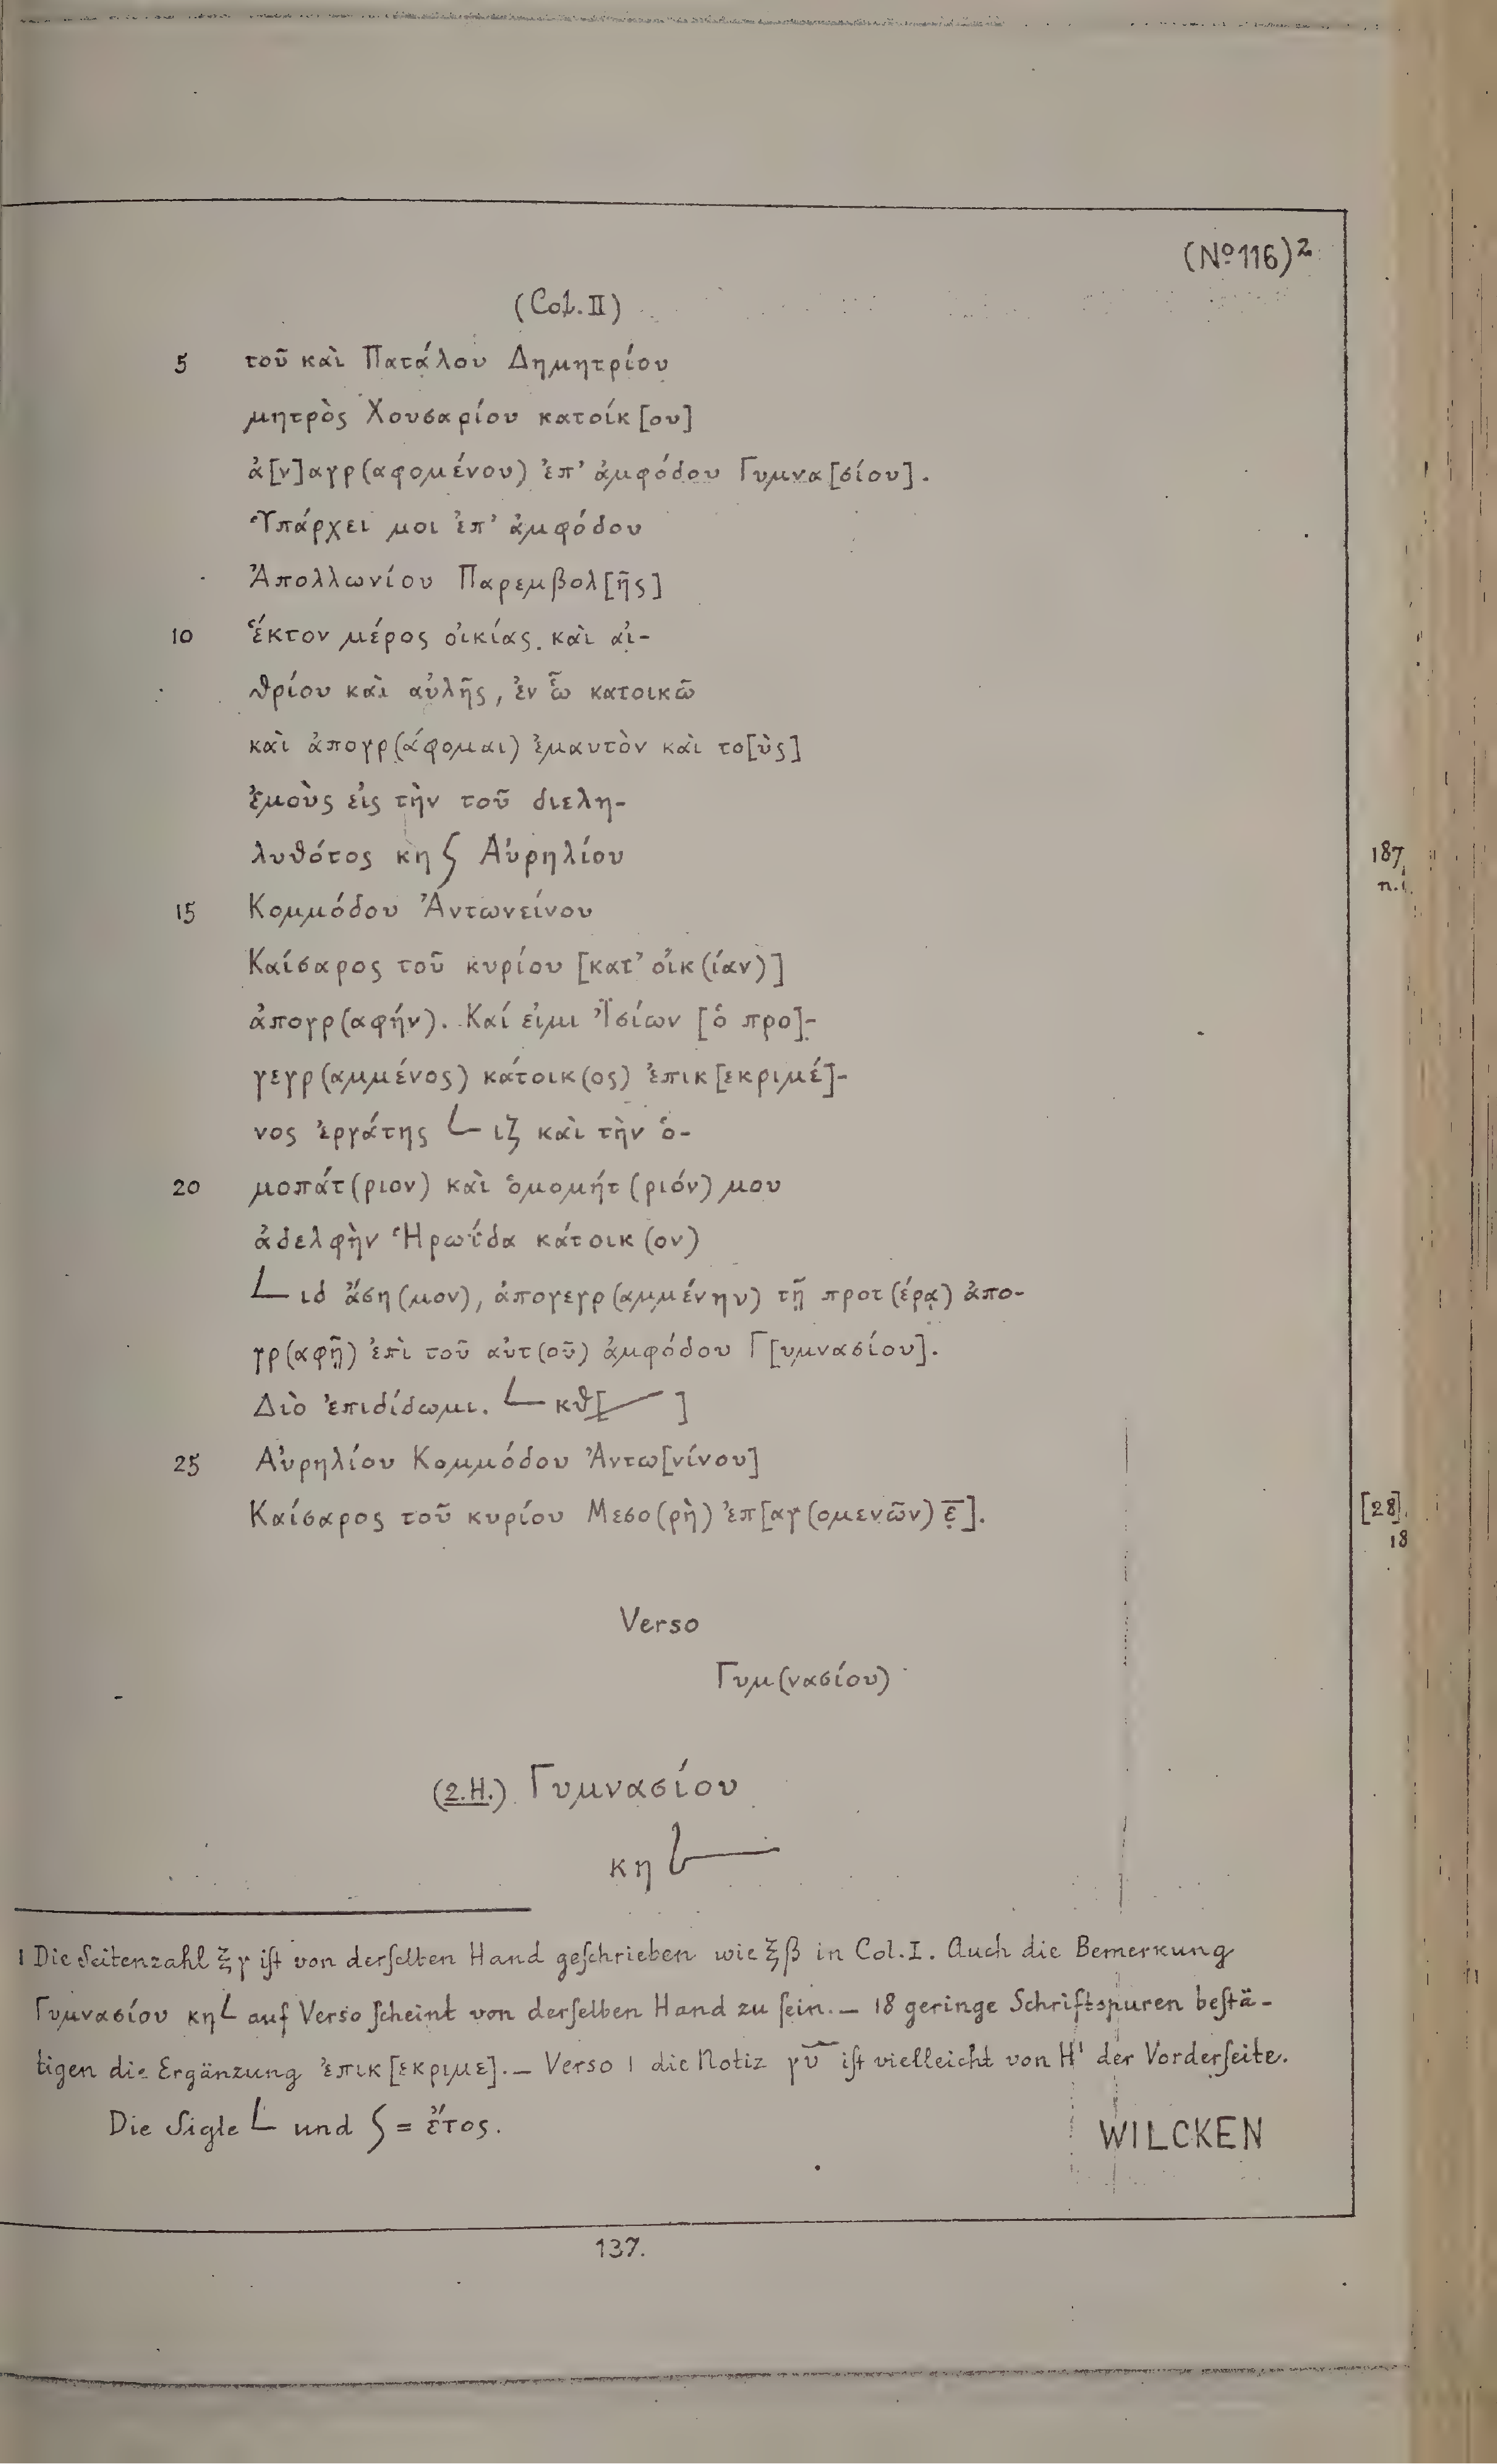 (Nº116)²
(Col. II)
5 τοῦ καὶ Πατάλου Δημητρίου
μητρὸς Χουσαρίου κατοίκ[ου]
ἀ[ν]αγρ(αφομένου) ἐπ' ἀμφόδου Γυμνα[σίου].
Ὑπάρχει μοι ἐπ' ἀμφόδου
Ἀπολλωνίου Παρεμβολ[ῆς]
10 ἕκτον μέρος οἰκίας. καὶ αἰ-
θρίου καὶ αὐλῆς, ἐν ᾧ κατοικῶ
καὶ ἀπογρ(άφομαι) ἐμαυτὸν καὶ το[ὺς]
ἐμοὺς εἰς τὴν τοῦ διελη-
λυθότος κη ʃ Αὐρηλίου
187,
n.
15 Κομμόδου Ἀντωνείνου
Καίσαρος τοῦ κυρίου [κατ' οἰκ(ίαν)]
ἀπογρ(αφήν). Καί εἰμι Ἰσίων [ὁ προ]-
γεγρ(αμμένος) κάτοικ(ος) ἐπικ[εκριμέ]-
νος ἐργάτης L ιζ καὶ τὴν ὁ-
20 μοπάτ(ριον) καὶ ὁμομήτ(ριόν) μου
ἀδελφὴν Ἡρωΐδα κάτοικ(ον)
L ιδ ἄση(μον), ἀπογεγρ(αμμένην) τῇ προτ(έρᾳ) ἀπο-
γρ(αφῇ) ἐπὶ τοῦ αὐτ(οῦ) ἀμφόδου Γ[υμνασίου].
Διὸ ἐπιδίδωμι. L κθ[ ]
25 Αὐρηλίου Κομμόδου Ἀντω[νίνου]
Καίσαρος τοῦ κυρίου Μεσο(ρὴ) ἐπ[αγ(ομενῶν) ε̣̅].
[28].
18
Verso
Γυμ(νασίου)
(2.H.) Γυμνασίου
κη L
1 Die Seitenzahl ξγ iſt von derſelben Hand geſchrieben wie ξβ in Col. I. Auch die Bemerkung
Γυμνασίου κη L auf Verso ſcheint von derſelben Hand zu ſein. — 18 geringe Schriftspuren beſtä-
tigen die Ergänzung ἐπικ[εκριμε]. — Verso 1 die Notiz γυ̅ iſt vielleicht von H¹ der Vorderſeite.
Die Sigle L und ʃ = ἔτος.
WILCKEN
137.